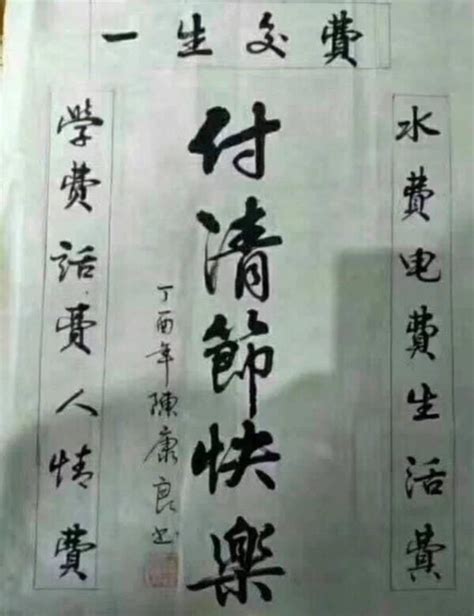 一生交費
水費电費生活費
付清節快樂
丁酉年陳康良书
学費話費人情費